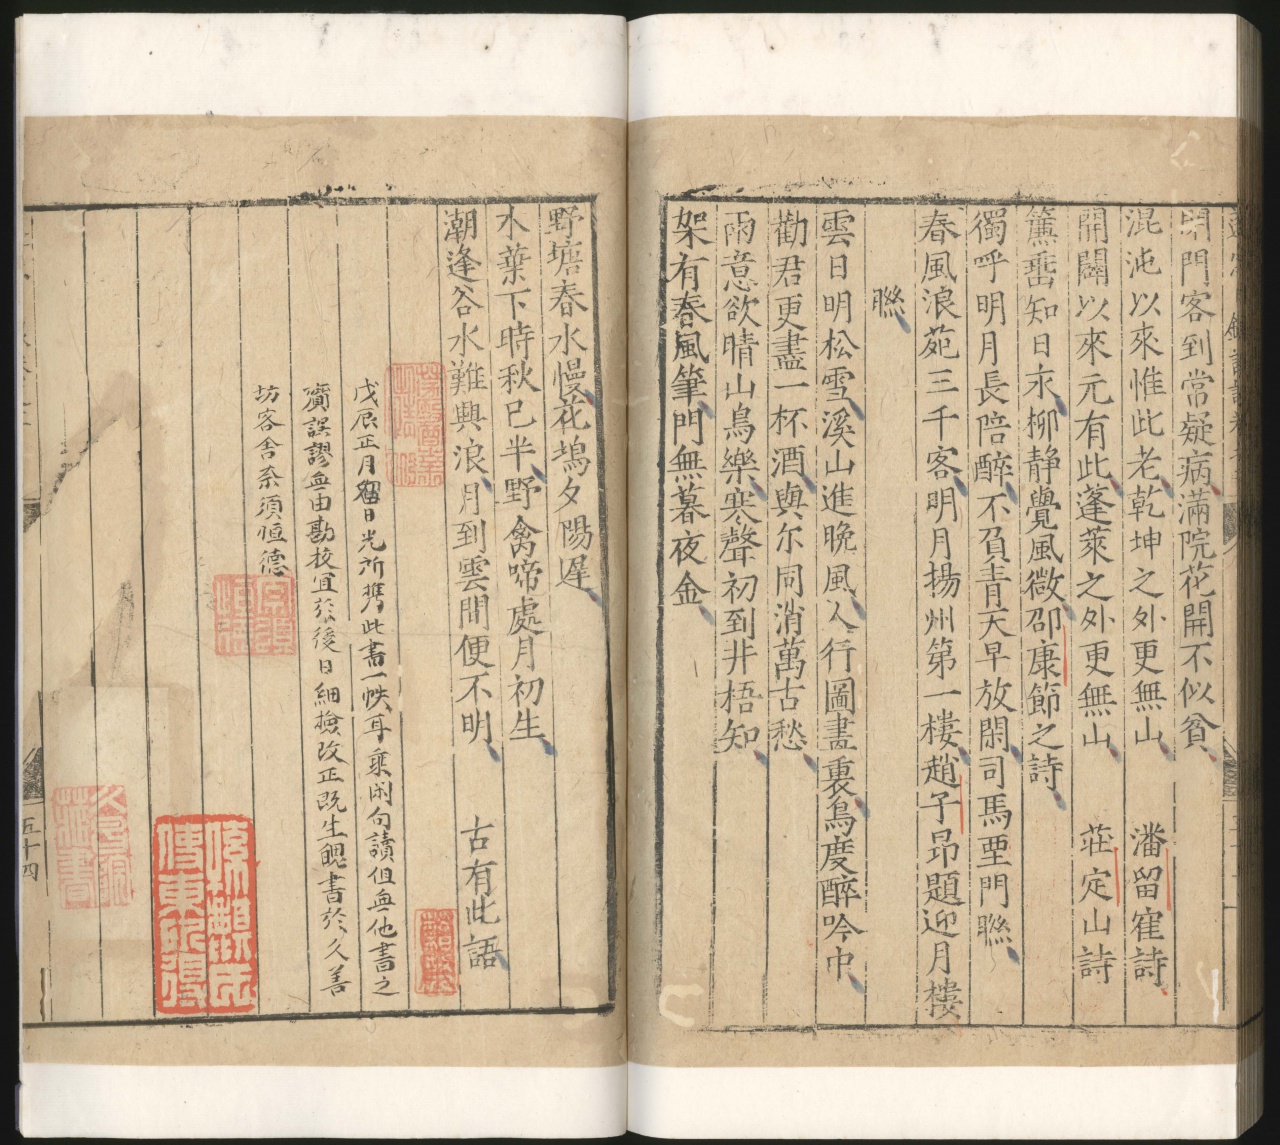 閉門客到常疑病滿院花開不似貧
混沌以來惟此老乾坤之外更無山 潘留寉詩
開闢以來元有此蓬萊之外更無山 莊定山詩
簾垂知日永柳靜覺風微邵康節之詩
獨呼明月長陪醉不負青天早放閑司馬垔門聮
春風浪苑三千客明月揚州第一樓趙子昂題迎月樓
聮
雲日明松雪溪山進晚風人行圖畫裏鳥度醉吟巾
勸君更盡一杯酒與尔同消萬古愁
雨意欲晴山鳥樂寒聲初到井梧知
架有春風筆門無暮夜金
野塘春水慢花塢夕陽遲
木葉下時秋已半野禽啼處月初生
潮逢谷水難興浪月到雲間便不明 古有此語
戊辰正月
日光所携此書一帙耳乗閑句讀但無他書之
誤謬無由勘校宜於後日細撿改正既生
書於久善
坊客舎
須恒德
五十四